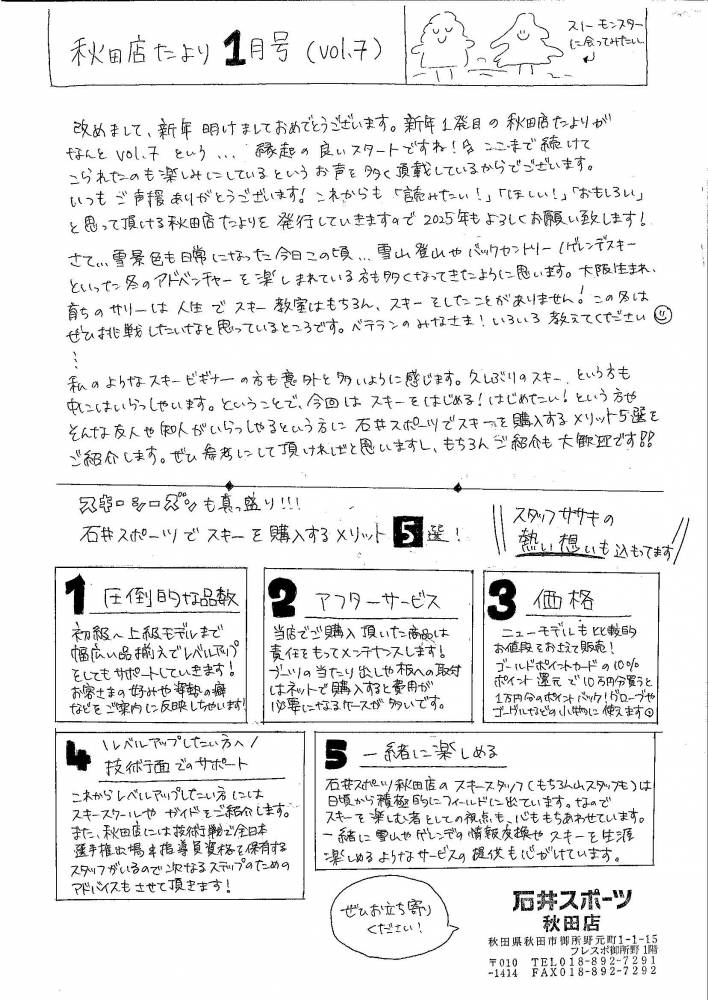 秋田店たより 1月号 (vol.7)
スノーモンスター
に会ってみたい。
改めまして、新年 明けましておめでとうございます。新年1発目の秋田店たよりが
なんと vol.7 という... 縁起の良いスタートですね! ここまで続けて
こられたのも楽しみにしているというお声を多く頂載しているからでございます。
いつもご声援ありがとうございます! これからも「読みたい!」「ほしい!」「おもしろい」
と思って頂ける秋田店たよりを発行していきますので2025年もよろしくお願い致します!
さて...雪景色も日常になった今日この頃...雪山登山やバックカントリー/ゲレンデスキー
といった冬のアドベンチャーを楽しまれている方も多くなってきたように思います。大阪生まれ、
育ちのサリーは人生でスキー教室はもちろん、スキーをしたことがありません! この冬は
ぜひ挑戦したいなと思っているところです。ベテランのみなさま!いろいろ教えてください
⋮
私のようなスキービギナーの方も意外と多いように感じます。久しぶりのスキー、という方も
中にはいらっしゃいます。ということで、今回はスキーをはじめる!はじめたい!という方や
そんな友人や知人がいらっしゃるという方に石井スポーツでスキーを購入するメリット5選を
ご紹介します。ぜひ参考にして頂ければと思いますし、もちろんご紹介も大歓迎です!!
スキーシーズンも真っ盛り!!!
石井スポーツでスキーを購入するメリット5選!
スタッフササキの
熱い想いも込もってます
1 圧倒的な品数
初級〜上級モデルまで
幅広い品揃えでレベルアップ
をしてもサポートしていきます!
お客さまの好みや姿勢の癖
などをご案内に反映しちゃいます!
2 アフターサービス
当店でご購入頂いた商品は
責任をもってメンテナンスします!
ブーツの当たり出しや板への取付
はネットで購入すると費用が
必要になるケースが多いです。
3 価格
ニューモデルも比較的
お値段をおさえて販売!
ゴールドポイントカードの10%
ポイント還元で10万円分買うと
1万円分のポイントバック!グローブや
ゴーグルなどの小物に使えます
4 \レベルアップしたい方へ/
技術面でのサポート
これからレベルアップしたい方には
スキースクールやガイドをご紹介します。
また、秋田店には技術戦で全日本
選手権出場&指導員資格を保有する
スタッフがいるので次なるステップのための
アドバイスもさせて頂きます!
5 一緒に楽しめる
石井スポーツ秋田店のスキースタッフ(もちろん山スタッフも)は
日頃から積極的にフィールドに出ています。なので
スキーを楽しむ者としての視点も、心ももちあわせています。
一緒に雪山やゲレンデの情報交換やスキーを生涯
楽しめるようなサービスの提供も心がけています。
ぜひお立ち寄り
ください!
石井スポーツ
秋田店
秋田県秋田市御所野元町1-1-15
フレスポ御所野1階
〒010 TEL018-892-7291
-1414 FAX018-892-7292